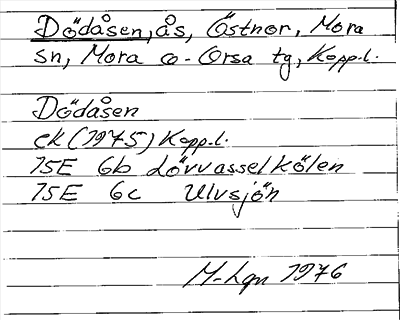 Dödåsen, ås, Östnor, Mora
sn, Mora o. Orsa tg, Kopp.l.
Dödåsen
ek (1975) Kopp.l.
15E 6b Lövvasselkölen
15E 6c Ulvsjön
M-Lgn 1976